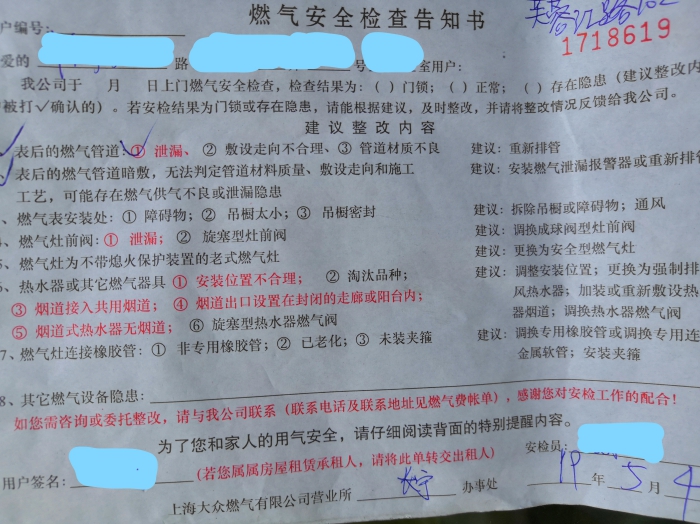 燃气安全检查告知书
芙蓉江路
户编号:
1718619
爱的 路 号 室用户:
我公司于 月 日上门燃气安全检查,检查结果为:( )门锁;( )正常;( )存在隐患(建议整改内
被打✓确认的)。若安检结果为门锁或存在隐患,请能根据建议,及时整改,并请将整改情况反馈给我公司。
建议整改内容
✓ 表后的燃气管道:① 泄漏、② 敷设走向不合理、③ 管道材质不良 建议:重新排管
✓ 表后的燃气管道暗敷,无法判定管道材料质量、敷设走向和施工 建议:安装燃气泄漏报警器或重新排管
工艺,可能存在燃气供气不良或泄漏隐患
、燃气表安装处:① 障碍物;② 吊橱太小;③ 吊橱密封 建议:拆除吊橱或障碍物;通风
、燃气灶前阀:① 泄漏;② 旋塞型灶前阀 建议:调换成球阀型灶前阀
、燃气灶为不带熄火保护装置的老式燃气灶 建议:更换为安全型燃气灶
、热水器或其它燃气器具 ① 安装位置不合理;② 淘汰品种; 建议:调整安装位置;更换为强制排
③ 烟道接入共用烟道;④ 烟道出口设置在封闭的走廊或阳台内; 风热水器;加装或重新敷设热
⑤ 烟道式热水器无烟道;⑥ 旋塞型热水器燃气阀 器烟道;调换热水器燃气阀
7、燃气灶连接橡胶管:① 非专用橡胶管;② 已老化;③ 未装夹箍 建议:调换专用橡胶管或调换专用连
金属软管;安装夹箍
8、其它燃气设备隐患:
如您需咨询或委托整改,请与我公司联系(联系电话及联系地址见燃气费帐单),感谢您对安检工作的配合!
为了您和家人的用气安全,请仔细阅读背面的特别提醒内容。
用户签名: (若您属属房屋租赁承租人,请将此单转交出租人) 安检员:
上海大众燃气有限公司营业所 长宁 办事处 19 年 5 月 4